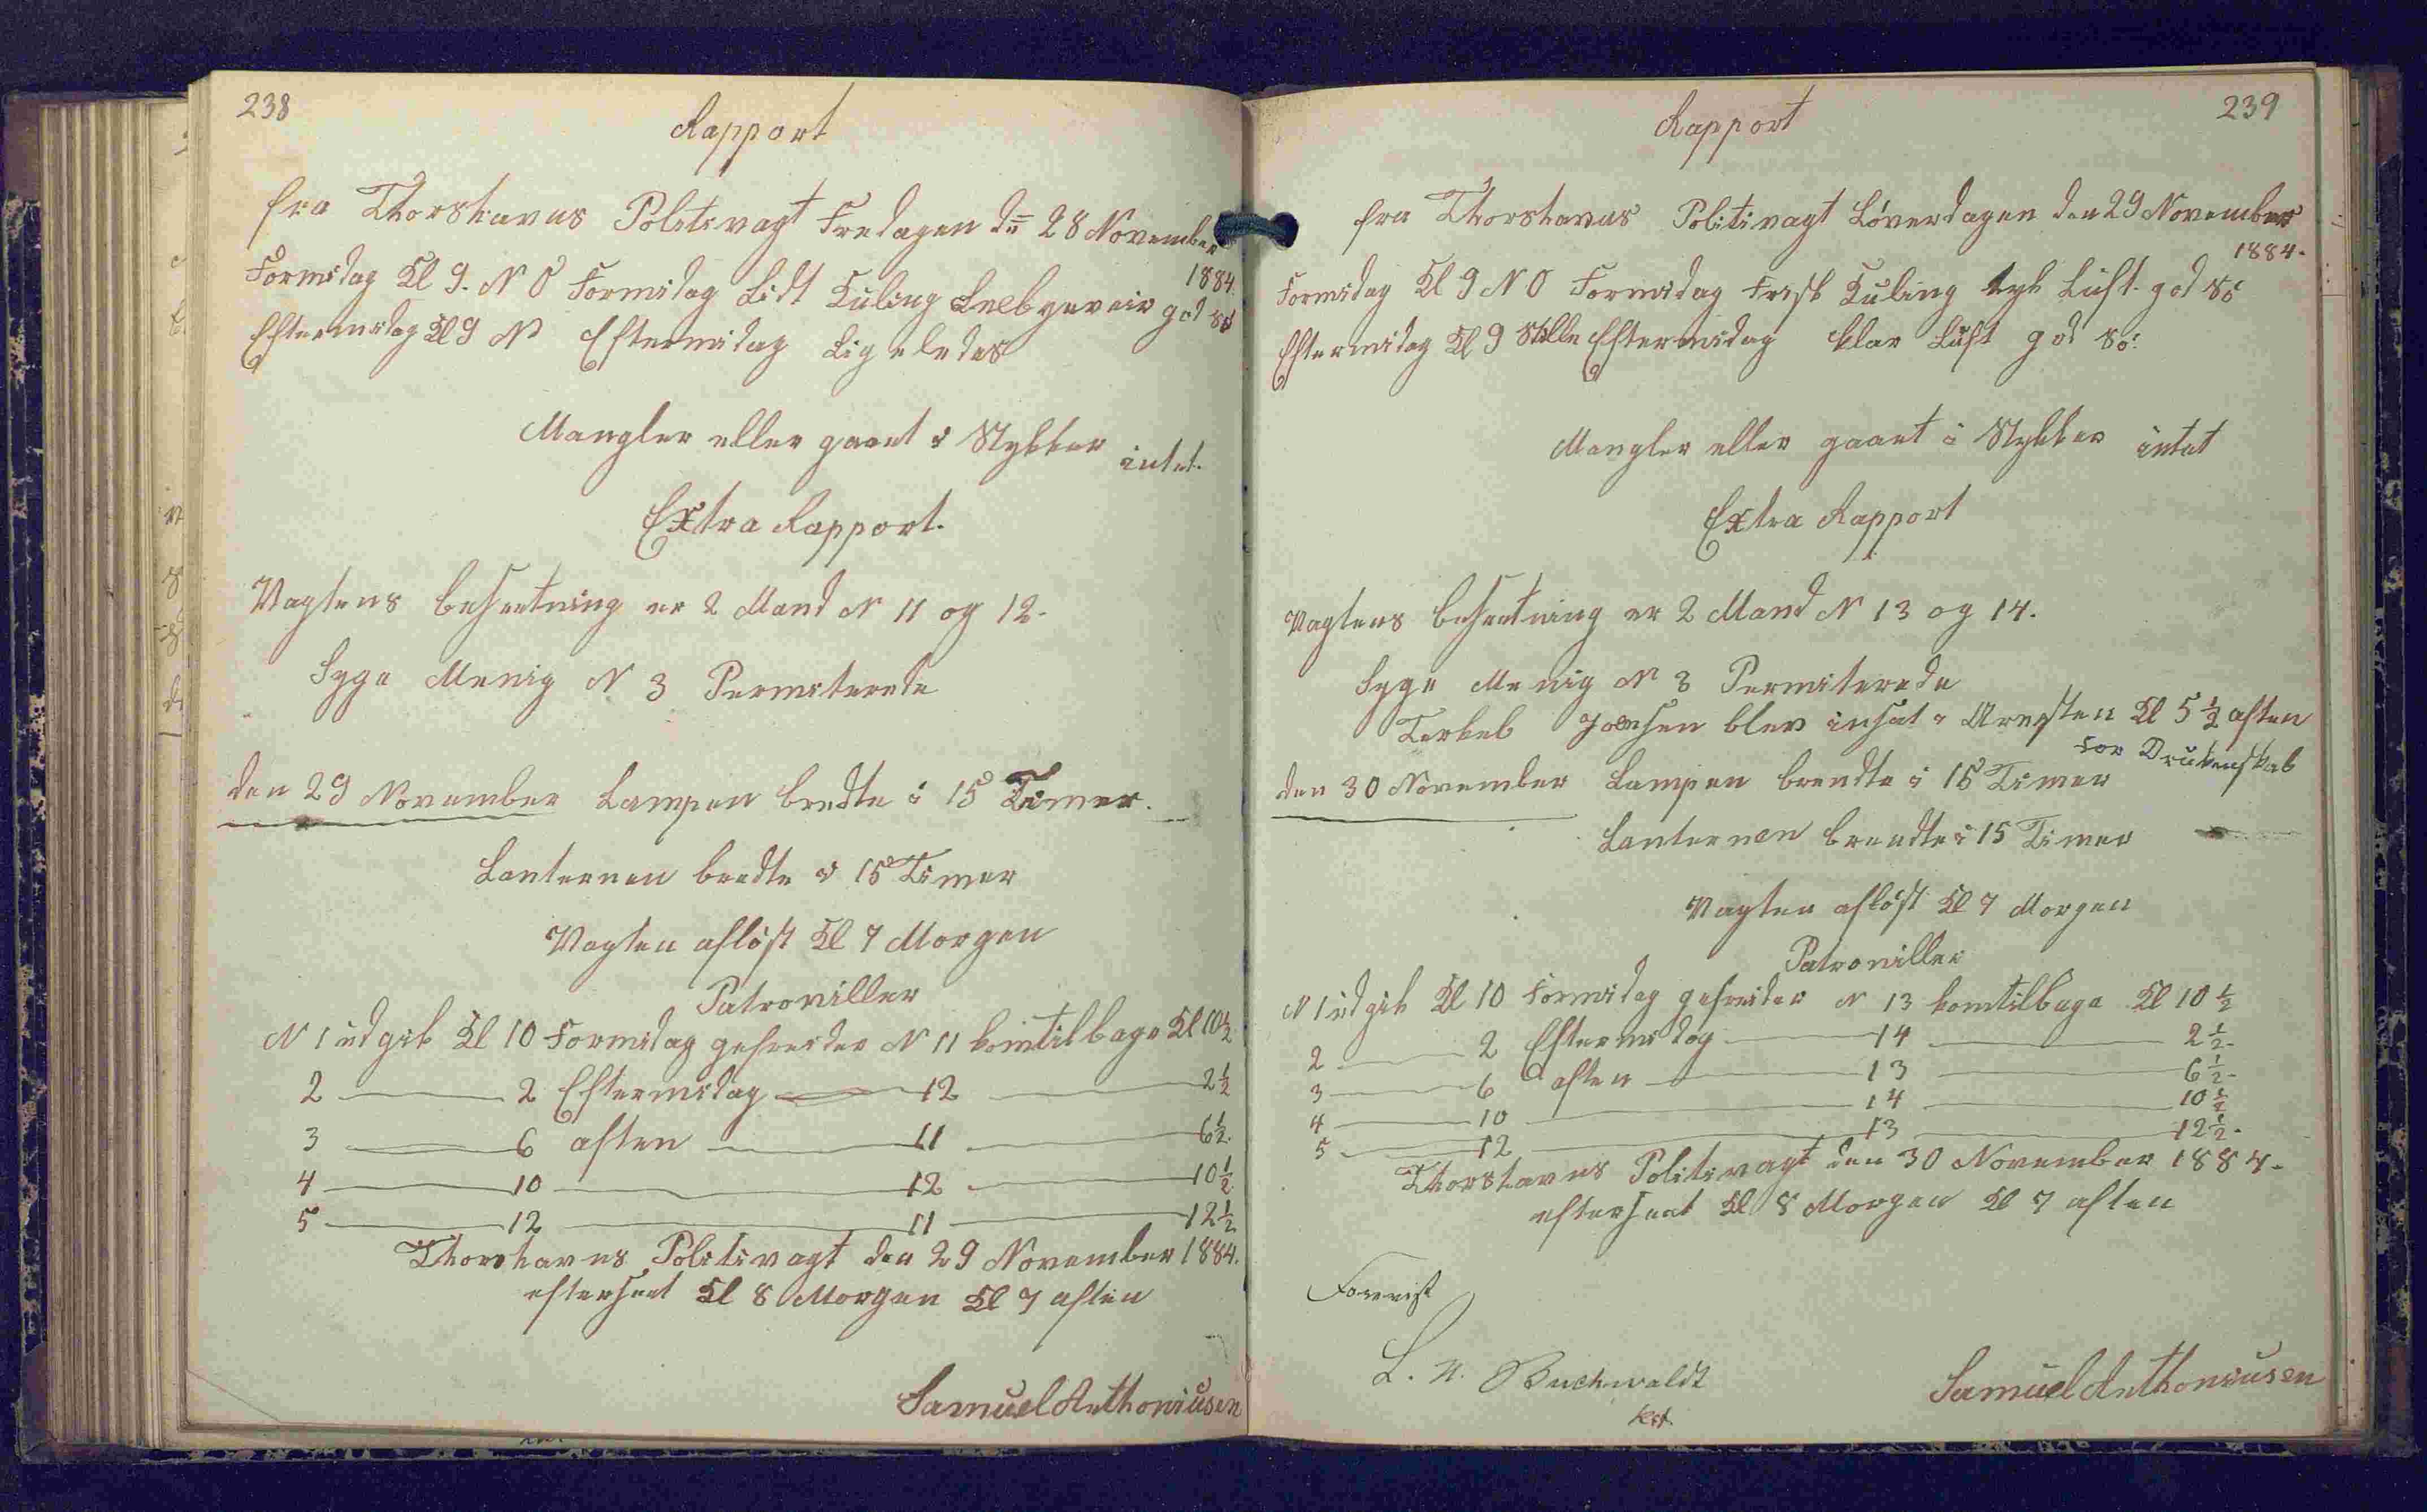 238
Rapport
fra Thorshavns Politivagt Fredagen dn 28 November
1884.
Formidag Kl 9. N O Formidag Lidt Kuling Eelbyeveir god Sø
Eftermidag Kl 9 N Eftermidag Ligeledes
Mangler eller gaaet i Stykker intet.
Extra Rapport.
Vagtens besætning er 2 Mand N 11 og 12.
Syge Menig N 3 Permiterede
den 29 November Lampen bredte i 15 Timer.
Lanternen bredte i 15 Timer
Vagten afløst Kl 7 Morgen
Patroviller
N 1 udgik Kl 10 Formidag gefreider N 11 komtilbage Kl 10 1/2
2 2 Eftermidag 12 2 1/2
3 6 aften 11 6 1/2.
4 10 12 10 1/2
5 12 11 12 1/2
Thorshavns Politivagt den 29 November 1884.
efterseet Kl 8 Morgen Kl 7 aften
Samuel Anthoniusen
239
Rapport
fra Thorshavns Politivagt Løverdagen den 29 November
1884.
Formidag Kl 9 N O Formidag Frisk Kuling tyk Luft god Sø
Eftermidag Kl 9 Stille Eftermidag klar Luft god Sø.
Mangler eller gaaet i Stykker intet
Extra Rapport
Vagtens besætning er 2 Mand N 13 og 14.
Syge Menig N 3 Permiterede
Terkel Joensen blev insat i Arresten Kl 5 1/2 aften
for Drukenskab
den 30 November Lampen brendte i 15 Timer
Lanternen brendte i 15 Timer
Vagten afløst Kl 7 Morgen
Patroviller
N 1 udgik Kl 10 Formidag gefreider N 13 komtilbage Kl 10 1/2
2 2 Eftermidag 14 2 1/2.
3 6 aften 13 6 1/2.
4 10 14 10 1/2
5 12 13 12 1/2.
Thorshavns Politivagt den 30 November 1884.
efterseet Kl 8 Morgen Kl 7 aften
Forevist
L. N. Buchwaldt
Samuel Anthoniusen